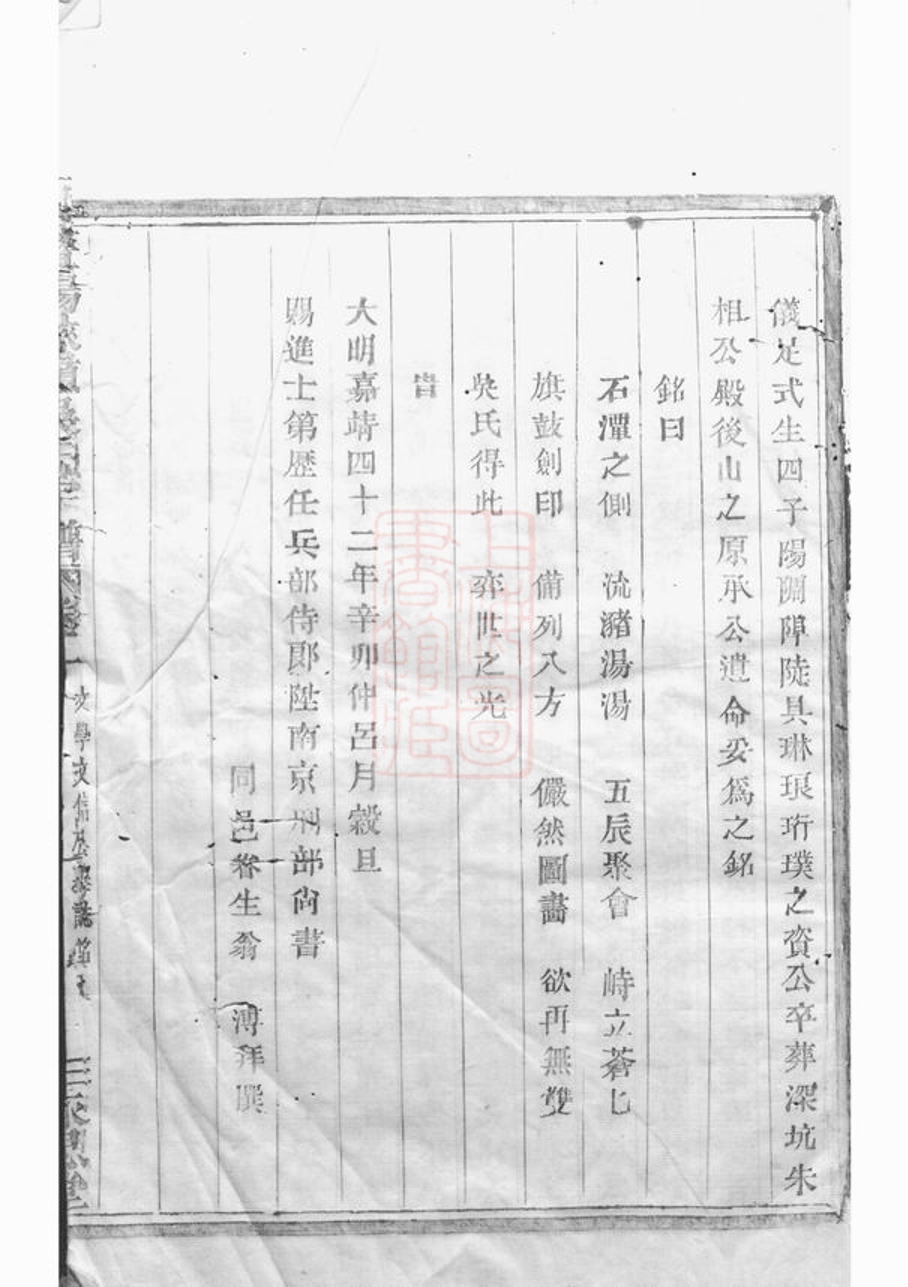 儀足式生四子陽闢陣陡具琳琅珩璞之資公卒葬深坑朱
相公殿後山之原承公遺命妥爲之銘
銘曰
石潭之側 流瀦湯湯 五辰聚會 峙立蒼七
旗鼓劍印 備列八方 儼然圖畵 欲再無雙
吳氏得此 弈世之光
旹
大明嘉靖四十二年辛卯仲呂月穀旦
賜進士第歷任兵部侍郎陞南京刑部尙書
同邑眷生翁 溥拜撰